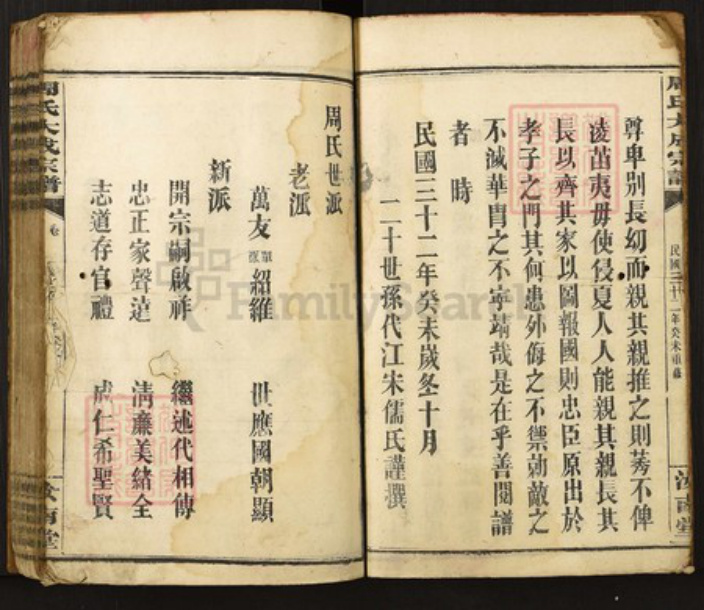 周氏大成宗譜
民國三十二年癸未重修
汝南堂
尊卑别長幼而親其親推之則莠不俾
淩苗夷毋使侵夏人人能親其親長其
長以齊其家以圖報國則忠臣原出於
孝子之門其何患外侮之不禦勍敵之
不滅華胄之不寧靖哉是在乎善閱譜
者時
民國三十二年癸未歲冬十月
二十世孫代江宋儒氏謹撰
周氏世派
老派
萬友 單派 紹維 世應國朝顯
新派
開宗嗣啟祥 繼述代相傳
忠正家聲達 清廉美緒全
志道存官禮 成仁希聖賢
周氏大成宗譜
卷
汝南堂
FamilySearch